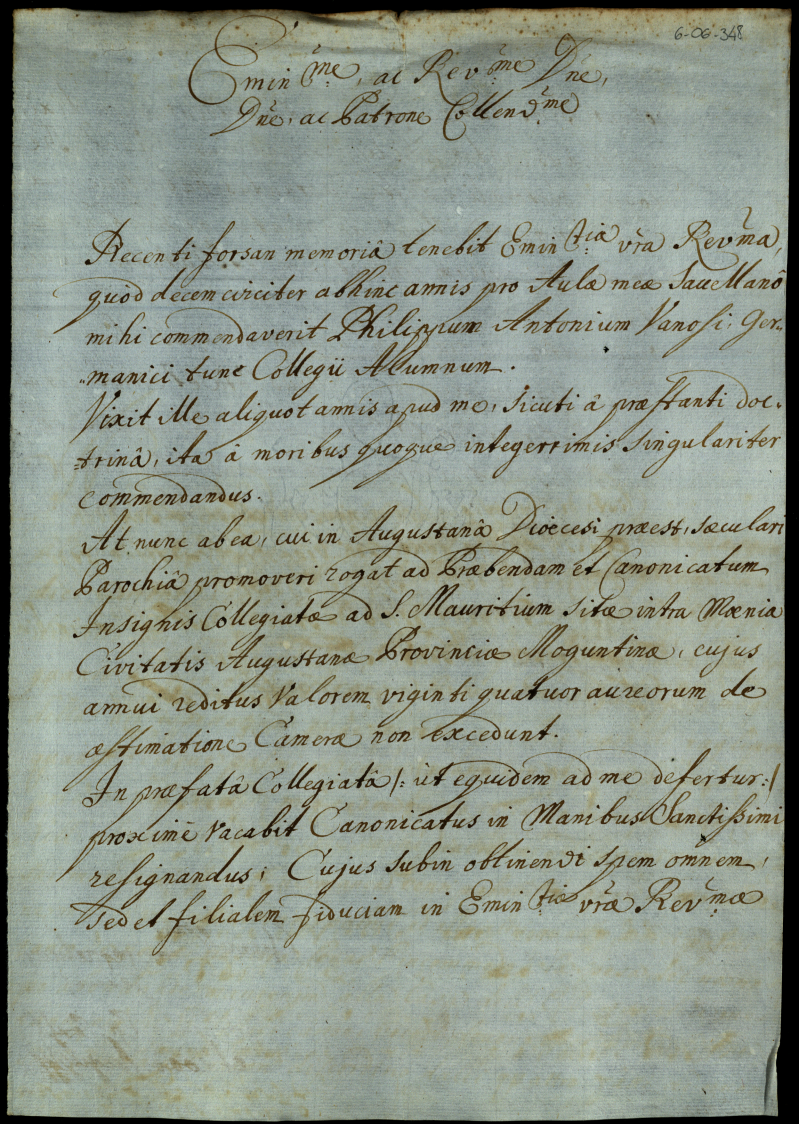 6-06-348
Emin:me, ac Rev:me Dne,
Dne, ac Patrone Collend:me
Recenti forsan memoriâ tenebit Emin:tia vra Rev:ma,
quod decem circiter abhinc annis pro Aulæ meæ Sacellano
mihi commendaverit Philippum Antonium Vanosi, Ger-
-manici tunc Collegii Alumnum.
Vixit ille aliquot annis apud me, sicuti â præstanti doc-
-trinâ, ita â moribus quoque integerrimis singulariter
commendandus.
At nunc ab ea, cui in Augustanâ Dioecesi præest, sæculari
Parochiâ promoveri rogat ad Præbendam et Canonicatum
Insignis Collegiatæ ad S. Mauritium sitæ intra Mænia
Civitatis Augustanæ Provinciæ Moguntinæ, cujus
annui reditus Valorem viginti quatuor aureorum de
æstimatione Cameræ non excedunt.
In præfatâ Collegiatâ /: ut equidem ad me defertur :/
proximè vacabit Canonicatus in Manibus Sanctissimi
resignandus; Cujus subin obtinendi spem omnem,
sed et filialem fiduciam in Emin:tiæ vræ Rev:mæ